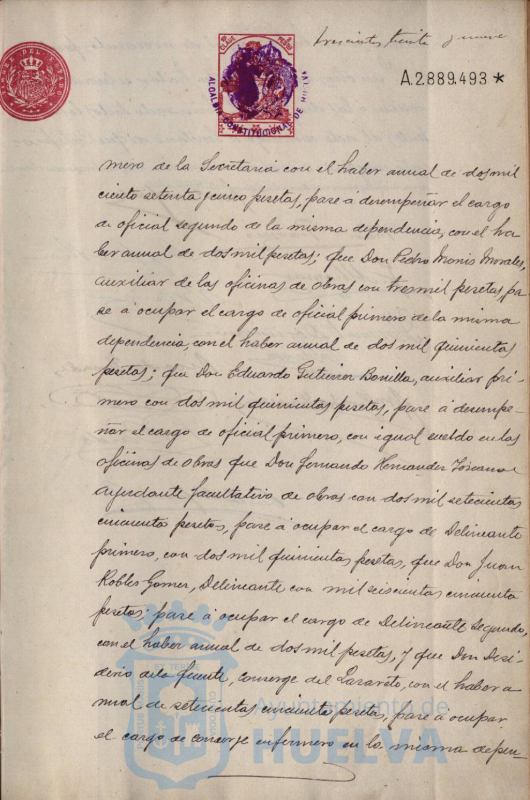 trescientos treinta y nueve
A.2.889.493 *
ALCALDIA CONSTITUCIONAL DE
mero de la Secretaria con el haber anual de dos mil
ciento setenta y cinco pesetas, pase á desempeñar el cargo
de oficial segundo de la misma dependencia, con el ha
ber anual de dos mil pesetas; que Don Pedro Monis Morales,
auxiliar de las oficinas de obras con tres mil pesetas, pa
se á ocupar el cargo de oficial primero de la misma
dependencia, con el haber anual de dos mil quinientas
pesetas; que Don Eduardo Gutierrez Bonilla, auxiliar pri-
mero con dos mil quinientas pesetas, pase á desempe-
ñar el cargo de oficial primero, con igual sueldo en las
oficinas de obras que Don Fernando Hernandez Toscano
Ayudante facultativo de obras con dos mil setecientas
cincuenta pesetas, pase á ocupar el cargo de Delineante
primero, con dos mil quinientas pesetas, que Don Juan
Robles Gomez, Delineante con mil seiscientas cincuenta
pesetas; pase á ocupar el cargo de Delineante Segundo,
con el haber anual de dos mil pesetas, y que Don Desi
derio de la Fuente, conserge del Lazareto, con el haber a
nual de setecientas cincuenta pesetas, pase á ocupar
el cargo de conserje enfermero en la misma depen-
Ayuntamiento de
HUELVA